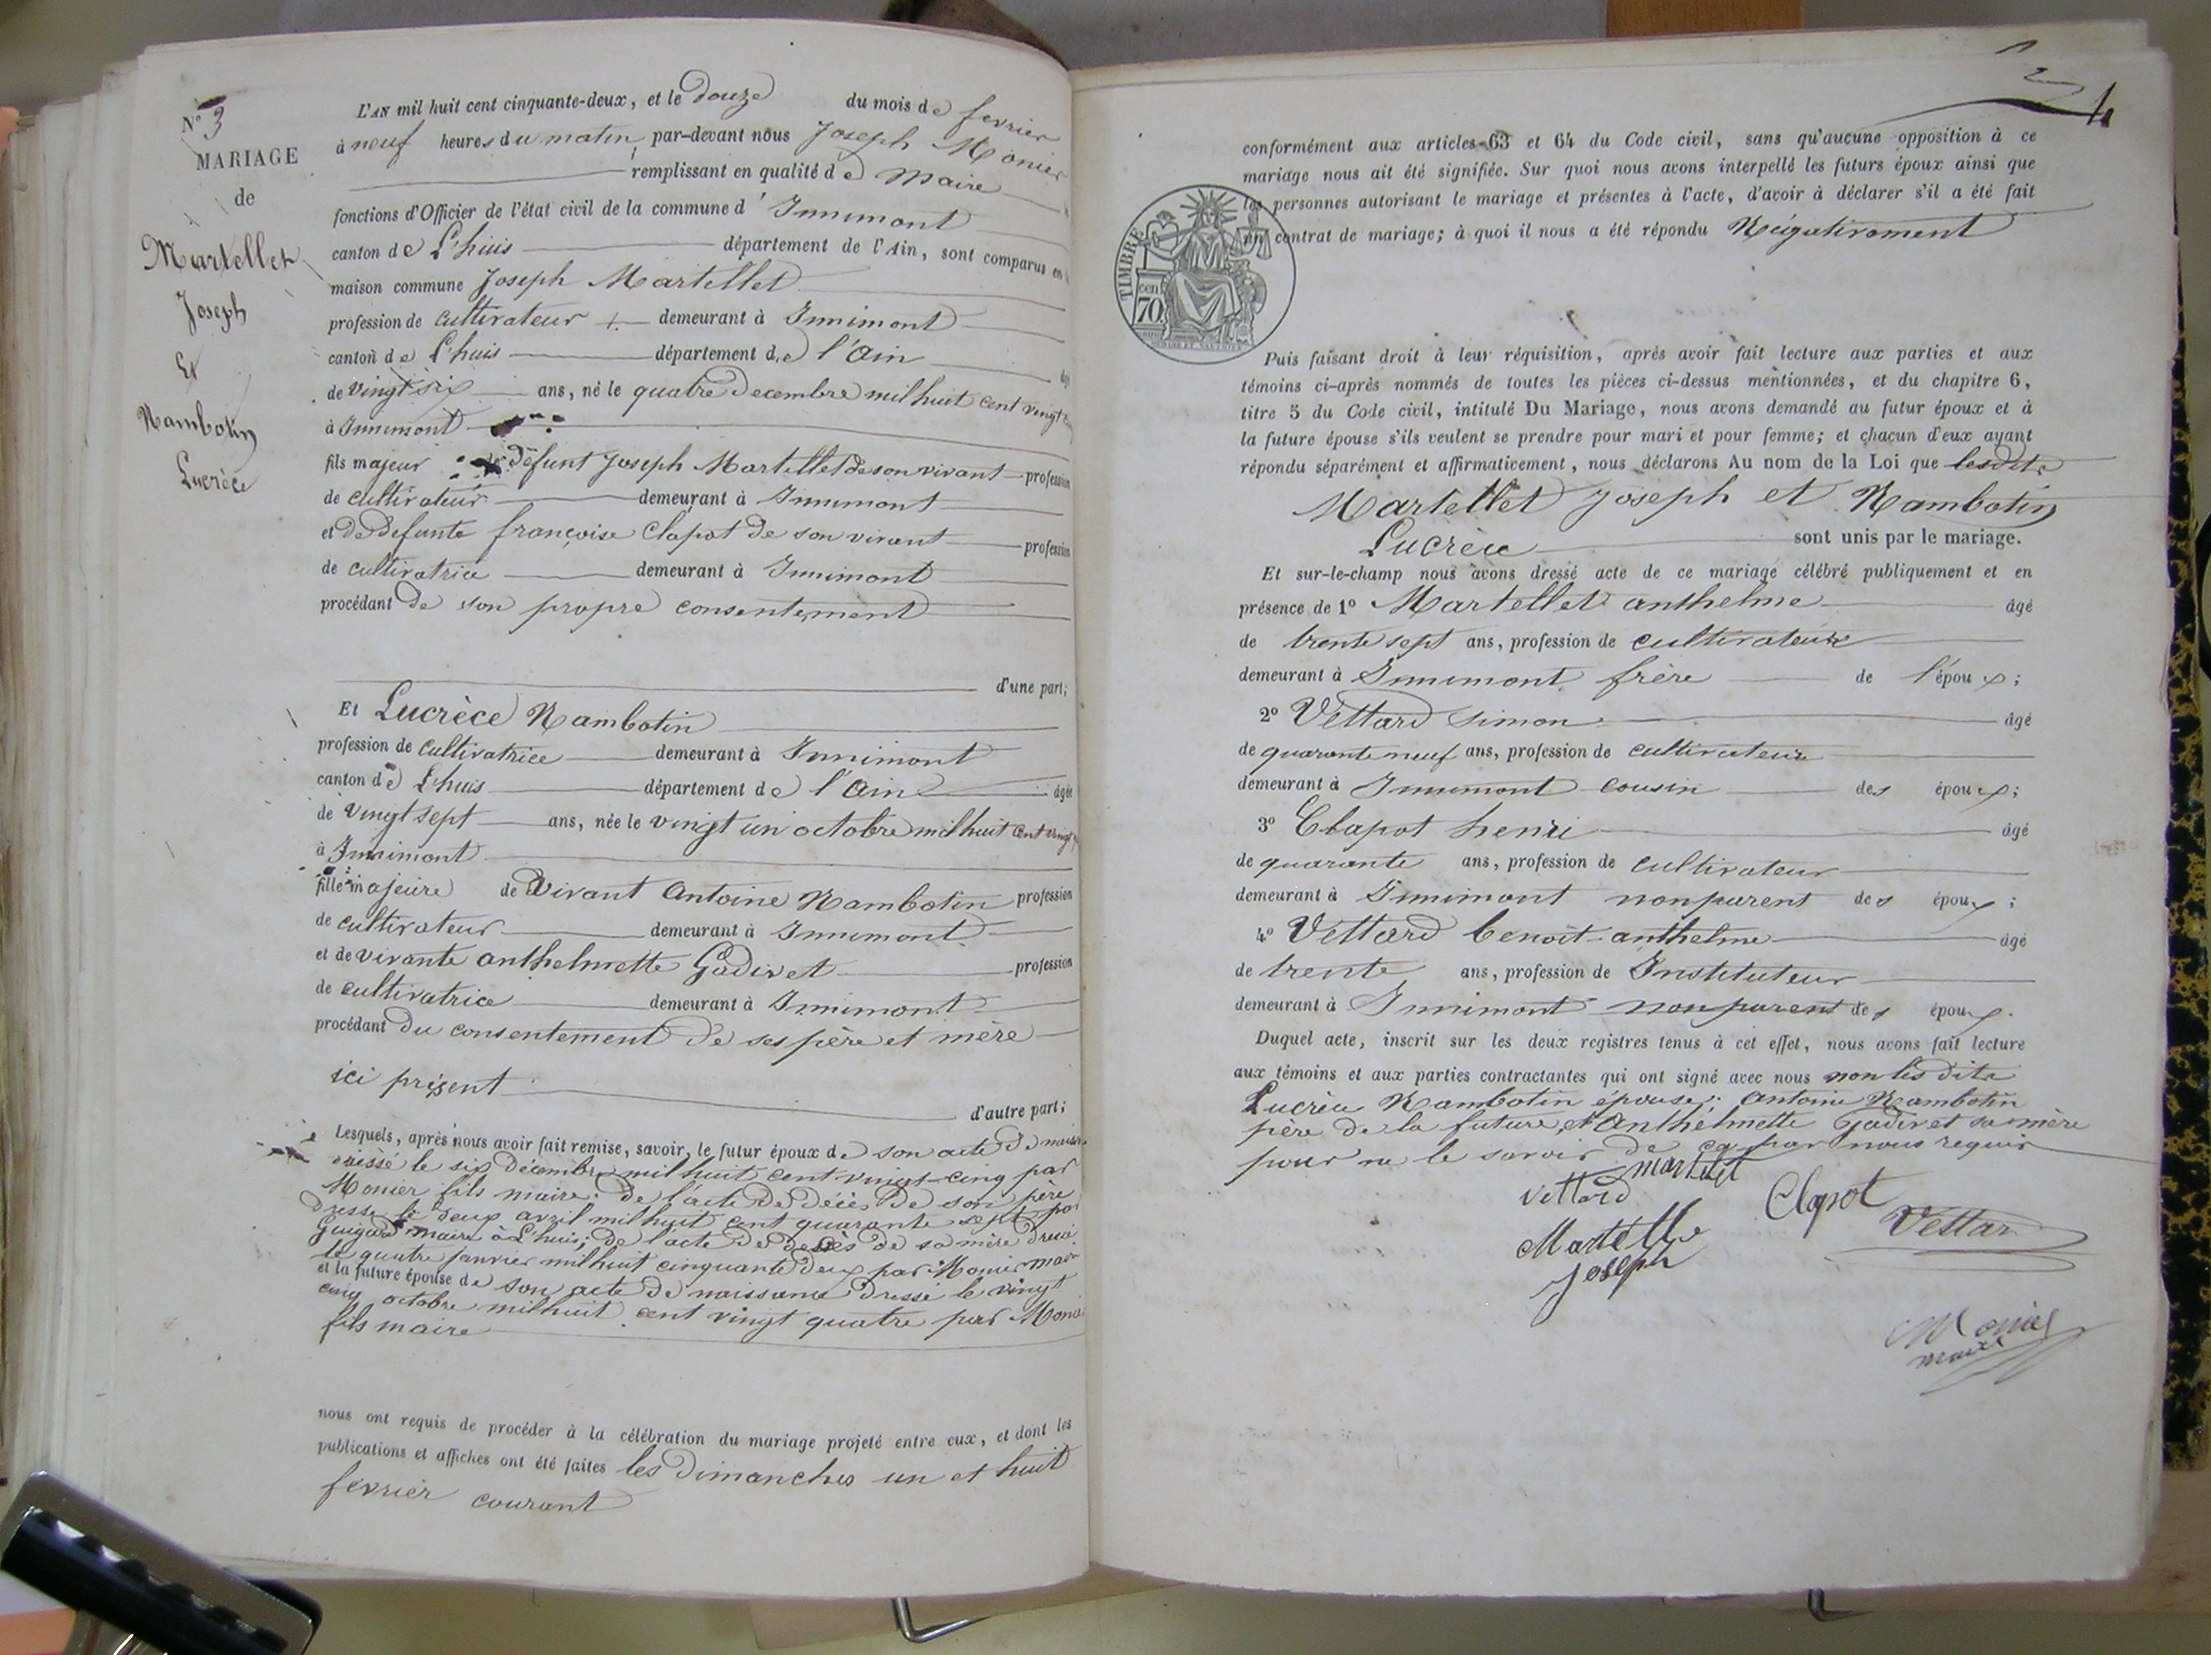 N° 3
MARIAGE
de
Martellet
Joseph
Et
Rambotin
Lucrèce
L'AN mil huit cent cinquante-deux, et le douze du mois de fevrier
à neuf heures du matin, par-devant nous Joseph Monier
remplissant en qualité de Maire
fonctions d'Officier de l'état civil de la commune d' Innimont
canton de L'huis département de l'Ain, sont comparus en
maison commune Joseph Martellet
profession de cultivateur demeurant à Innimont
canton de L'huis département de l'Ain
de vingt six ans, né le quatre Decembre mil huit cent vingt
à Innimont
fils majeur de défunt Joseph Martellet de son vivant profession
de cultivateur demeurant à Innimont
et de Defunte françoise Clapot de son vivant profession
de cultivatrice demeurant à Innimont
procédant de son propre consentement
d'une part;
Et Lucrèce Rambotin
profession de cultivatrice demeurant à Innimont
canton de L'huis département de l'Ain âgée
de vingt sept ans, née le vingt un octobre mil huit cent vingt
à Innimont
fille majeure de vivant Antoine Rambotin profession
de cultivateur demeurant à Innimont
et de vivante anthelmette Godivet profession
de cultivatrice demeurant à Innimont
procédant du consentement de ses père et mère
ici présent
d'autre part;
Lesquels, après nous avoir fait remise, savoir, le futur époux de son acte de
le six décembre mil huit cent vingt-cinq par
Monier fils maire; de l'acte de décès de son père
dressé le deux avril mil huit cent quarante sept par
maire à L'huis; de l'acte de décès de sa mère
le quatre janvier mil huit cinquante deux par Monier
et la future épouse de son acte de naissance dressé le vingt
cinq octobre mil huit cent vingt quatre par
fils maire
nous ont requis de procéder à la célébration du mariage projeté entre eux, et dont les
publications et affiches ont été faites les Dimanches un et huit
fevrier courant
4
conformément aux articles 63 et 64 du Code civil, sans qu'aucune opposition à ce
mariage nous ait été signifiée. Sur quoi nous avons interpellé les futurs époux ainsi que
les personnes autorisant le mariage et présentes à l'acte, d'avoir à déclarer s'il a été fait
un contrat de mariage; à quoi il nous a été répondu Négativement
TIMBRE
cen
70
Puis faisant droit à leur réquisition, après avoir fait lecture aux parties et aux
témoins ci-après nommés de toutes les pièces ci-dessus mentionnées, et du chapitre 6,
titre 5 du Code civil, intitulé Du Mariage, nous avons demandé au futur époux et à
la future épouse s'ils veulent se prendre pour mari et pour femme; et chacun d'eux ayant
répondu séparément et affirmativement, nous déclarons Au nom de la Loi que lesdits
Martellet Joseph et Rambotin
Lucrèce sont unis par le mariage.
Et sur-le-champ nous avons dressé acte de ce mariage célébré publiquement et en
présence de 1° Martellet anthelme âgé
de trente sept ans, profession de cultivateur
demeurant à Innimont frère de l'époux;
2° Vettard simon âgé
de quarante neuf ans, profession de cultivateur
demeurant à Innimont cousin des époux;
3° Clapot henri âgé
de quarante ans, profession de cultivateur
demeurant à Innimont non parent des époux;
4° Vettard benoit-anthelme âgé
de trente ans, profession de Instituteur
demeurant à Innimont non parent des époux.
Duquel acte, inscrit sur les deux registres tenus à cet effet, nous avons fait lecture
aux témoins et aux parties contractantes qui ont signé avec nous non les dits
Lucrèce Rambotin épouse; Antoine Rambotin
père de la future, et Anthelmette Godivet sa mère
pour ne le savoir de ce par nous requis
Vettard martellet Clapot
Martelle Joseph
Vettar
Monier
maire